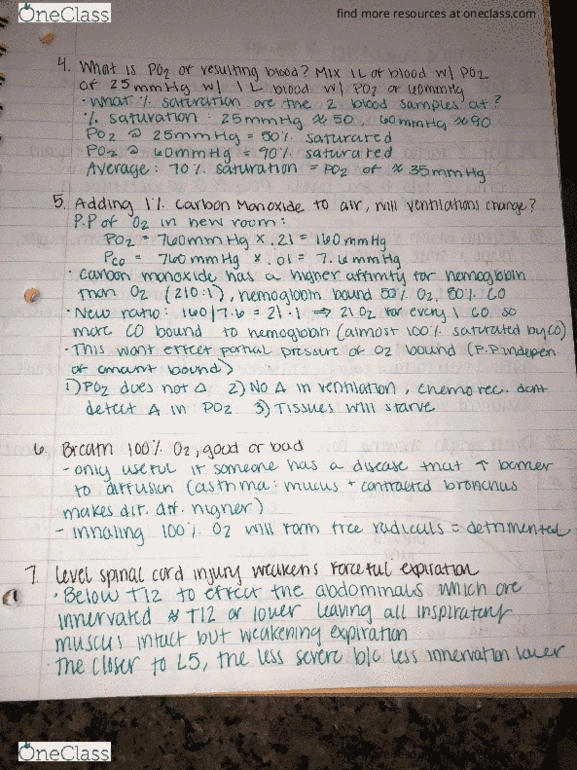 OneClass
find more resources at oneclass.com
4. What is PO2 of resulting blood? Mix 1L of blood w/ PO2
of 25mmHg w/ 1L blood w/ PO2 of 40mmHg
· What % saturation are the 2 blood samples at?
% saturation : 25mmHg ≈ 50, 60mmHg ≈ 90
PO2 @ 25mmHg = 50% saturated
PO2 @ 60mmHg = 90% saturated
Average : 70% saturation = PO2 of ≈ 35mmHg
5. Adding 1% Carbon Monoxide to air, will ventilations change?
P.P of O2 in new room :
PO2 = 760mmHg x .21 = 160mmHg
PCO = 760mmHg x .01 = 7.6mmHg
· Carbon monoxide has a higher affinity for hemoglobin
than O2 (210:1), hemoglobin bound 50% O2, 50% CO
· New ratio: 160/7.6 = 21:1 ⇒ 21 O2 for every 1 CO, so
more CO bound to hemoglobin (almost 100% saturated by CO)
· This wont effect partial pressure of O2 bound (P.P indepen.
of amount bound)
1) PO2 does not Δ 2) No Δ in ventilation, chemo rec. dont
detect Δ in PO2 3) Tissues will starve
6. Breath 100% O2, good or bad
- only useful if someone has a disease that ↑ barrier
to diffusion (asthma: mucus + contracted bronchus
makes dif. diff. higher)
- inhaling 100% O2 will form free radicals = detrimental
7. Level spinal cord injury weakens forceful expiration
· Below T12 to effect the abdominals which are
innervated @ T12 or lower leaving all inspiratory
muscles intact but weakening expiration
· The closer to L5, the less severe b/c less innervation lower
OneClass